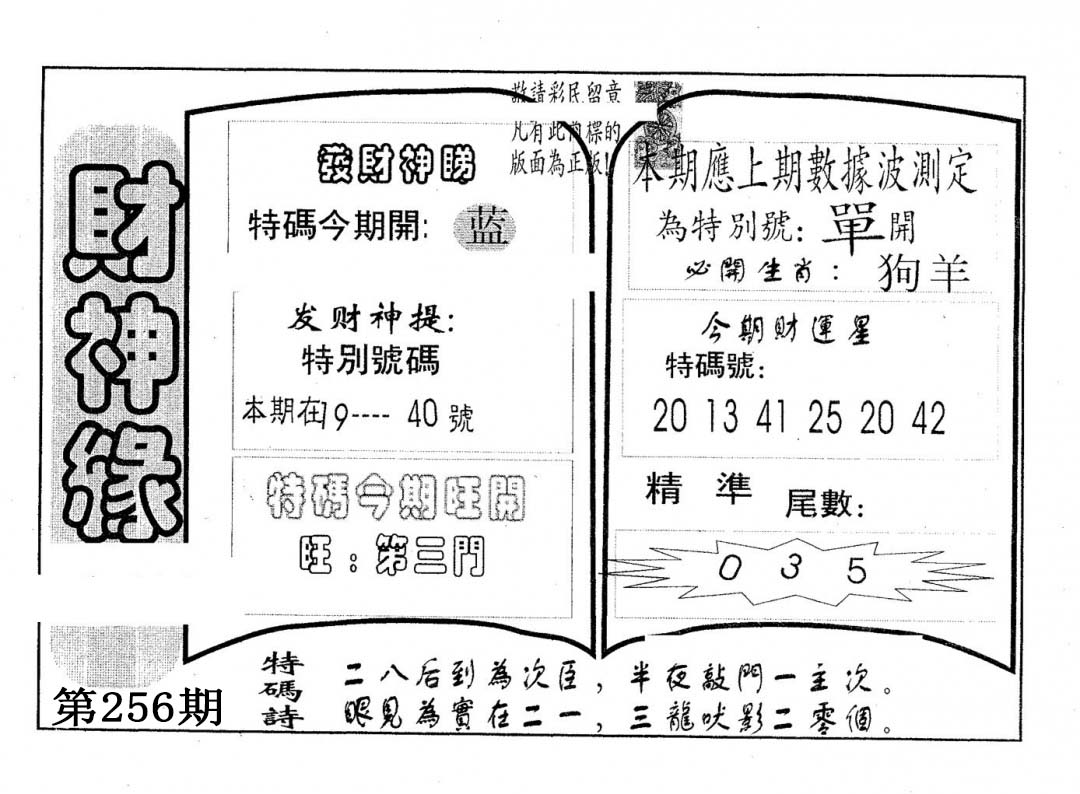 財神緣
第256期
敬請彩民留意
凡有此商標的
版面為正版!
發財神睇
特碼今期開: 蓝
发财神提:
特別號碼
本期在19---- 40號
特碼今期旺開
旺:第三門
本期應上期數據波測定
為特別號: 單開
必開生肖: 狗羊
今期財運星
特碼號:
20 13 41 25 20 42
精準 尾數:
0 3 5
特碼詩
二八后到為次臣,半夜敲門一主次。
眼見為實在二一,三龍吠影二零個。